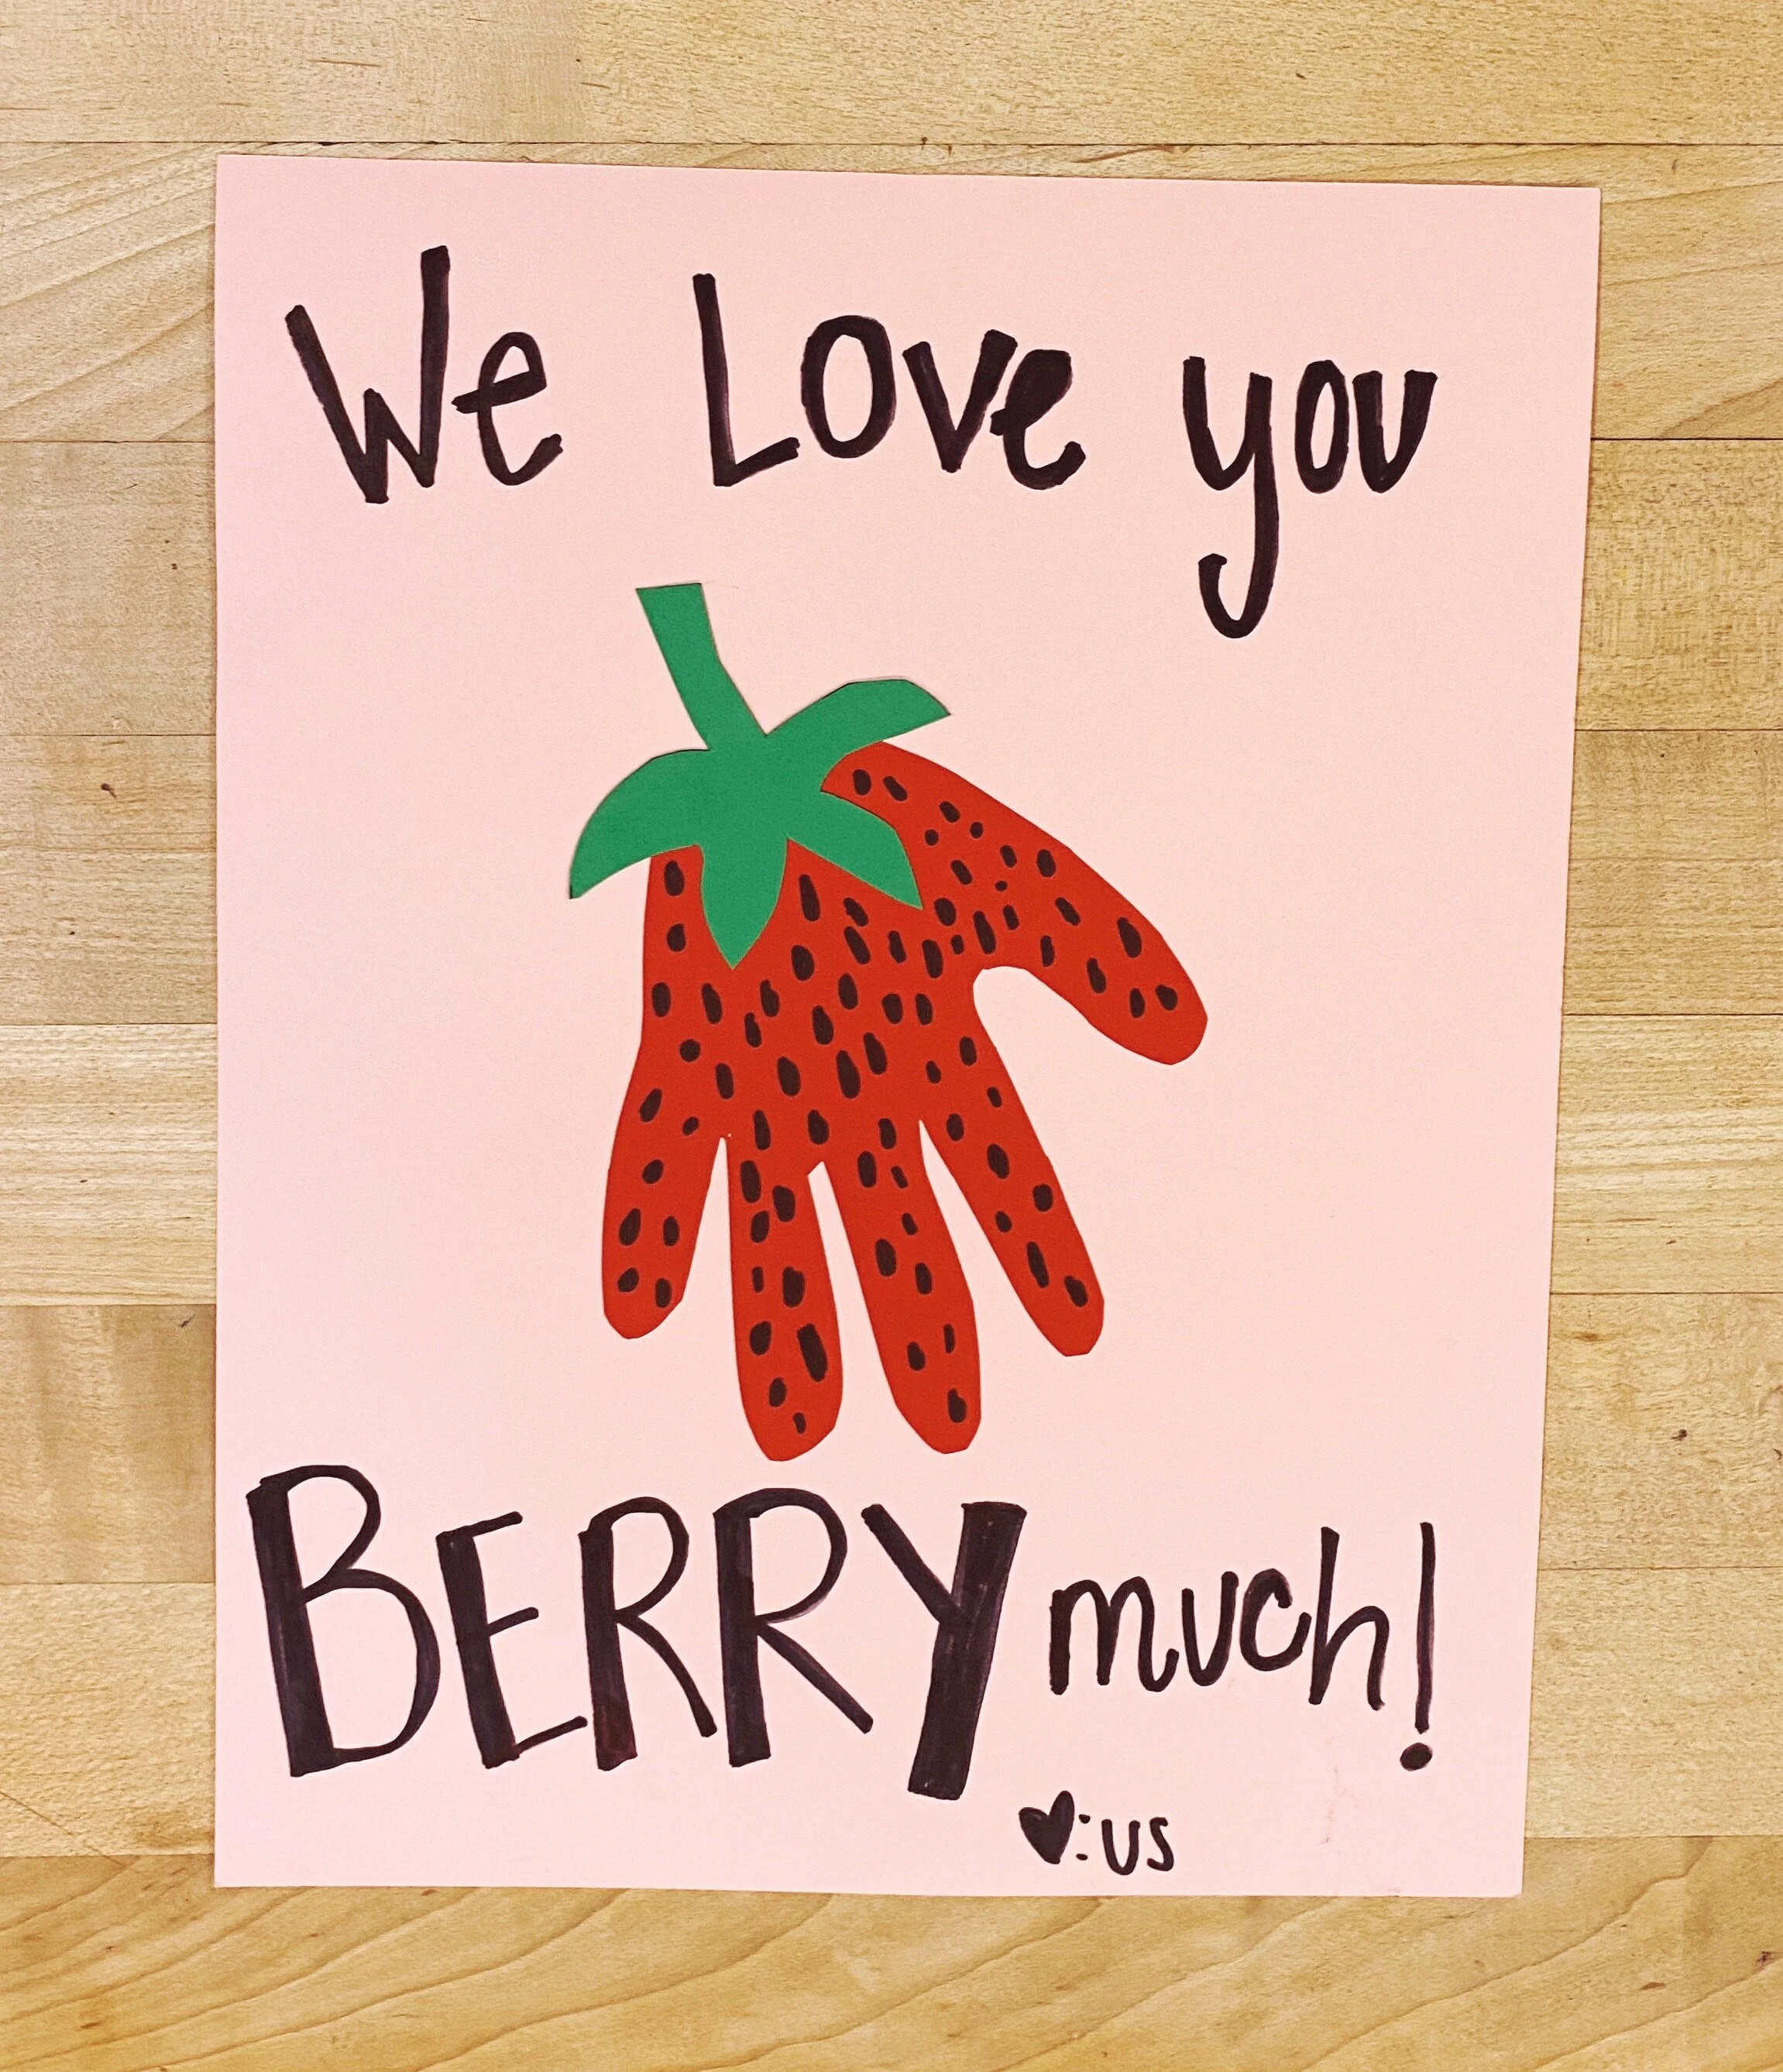 We Love you
BERRY much!
♥:us